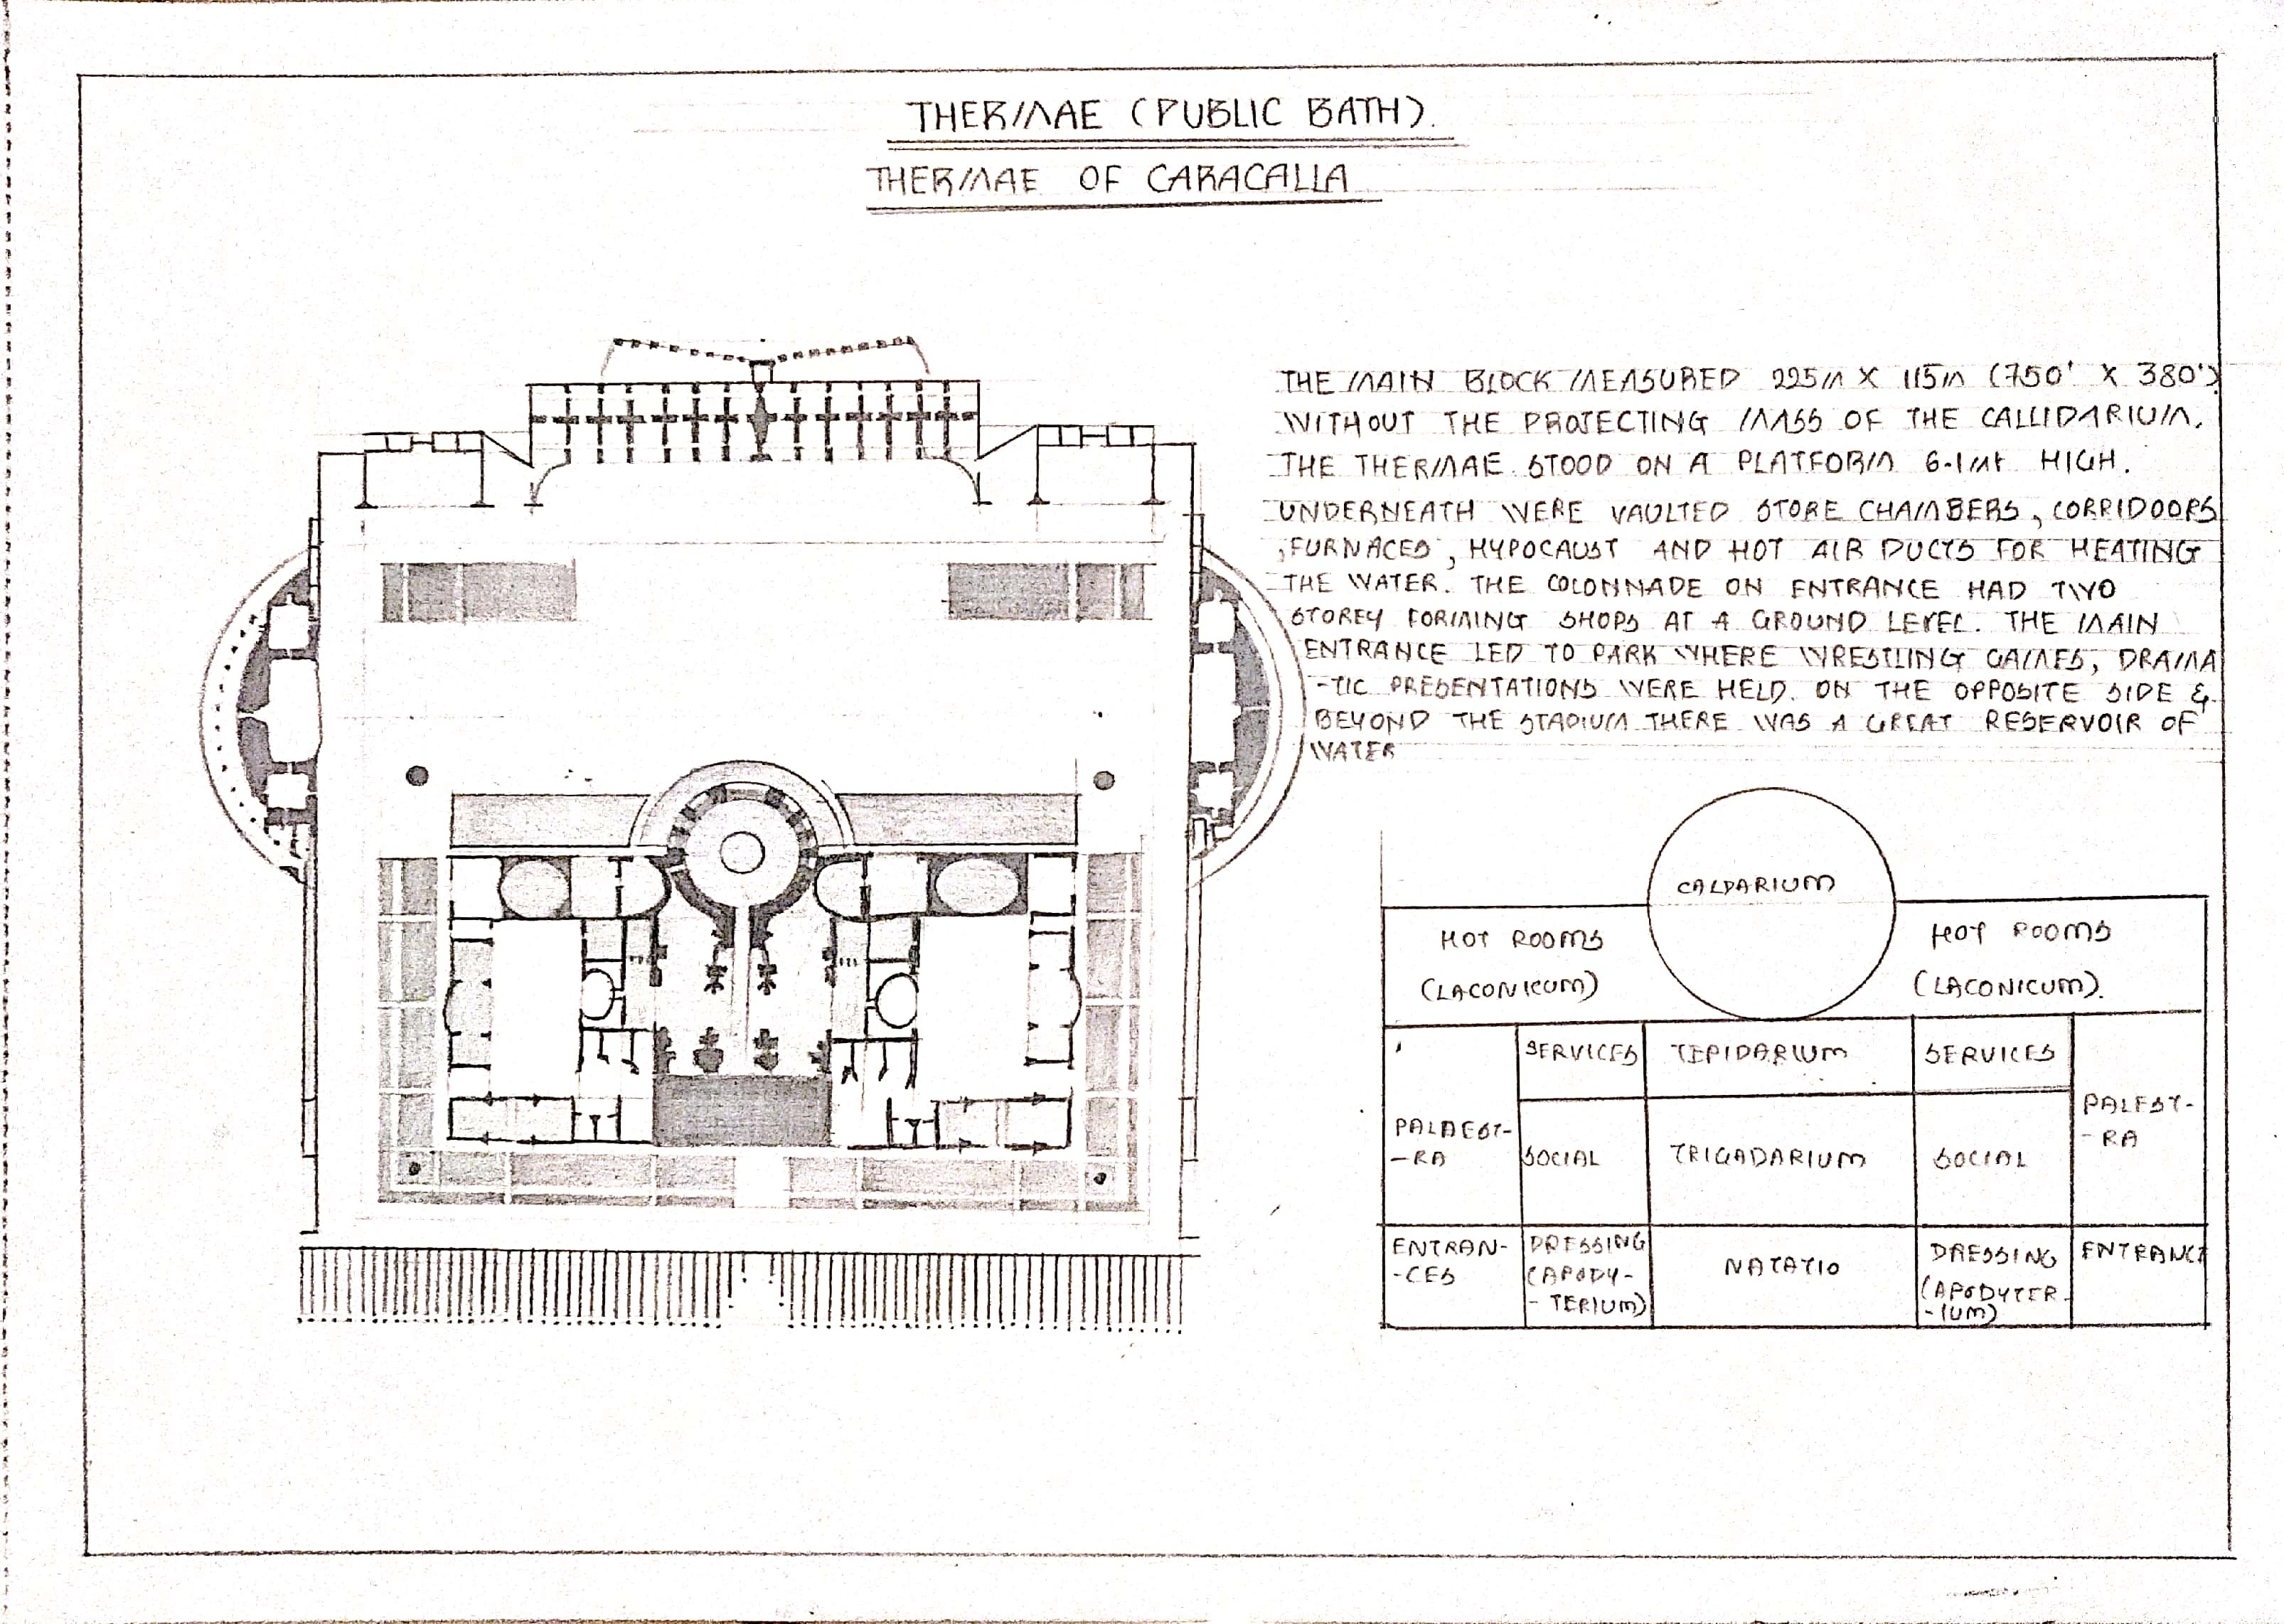 THERMAE (PUBLIC BATH).
THERMAE OF CARACALLA
THE MAIN BLOCK MEASURED 225m X 115m (750' X 380')
WITHOUT THE PROTECTING MASS OF THE CALLIDARIUM.
THE THERMAE STOOD ON A PLATFORM 6.1mt HIGH.
UNDERNEATH WERE VAULTED STORE CHAMBERS, CORRIDOORS
,FURNACES, HYPOCAUST AND HOT AIR DUCTS FOR HEATING
THE WATER. THE COLONNADE ON ENTRANCE HAD TWO
STOREY FORMING SHOPS AT A GROUND LEVEL. THE MAIN
ENTRANCE LED TO PARK WHERE WRESTLING GAMES, DRAMA
-TIC PRESENTATIONS WERE HELD. ON THE OPPOSITE SIDE &
BEYOND THE STADIUM THERE WAS A GREAT RESERVOIR OF
WATER
CALDARIUM
HOT ROOMS
(LACONICUM)
HOT ROOMS
(LACONICUM).
SERVICES
TEPIDARIUM
SERVICES
PALAEST-
-RA
SOCIAL
TRIGADARIUM
SOCIAL
PALEST-
-RA
ENTRAN-
-CES
DRESSING
(APODY-
- TERIUM)
NATATIO
DRESSING
(APODYTER-
-IUM)
ENTRANCE